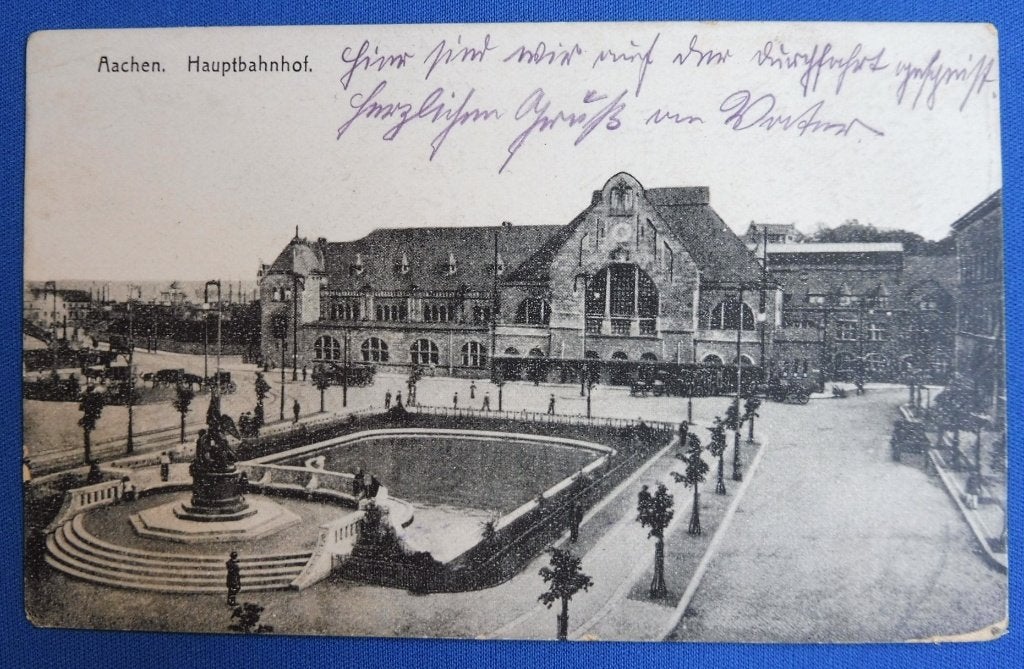 Aachen. Hauptbahnhof.
Hier sind wir auf der Durchfahrt gespeist.
Herzlichen Gruß an Vater